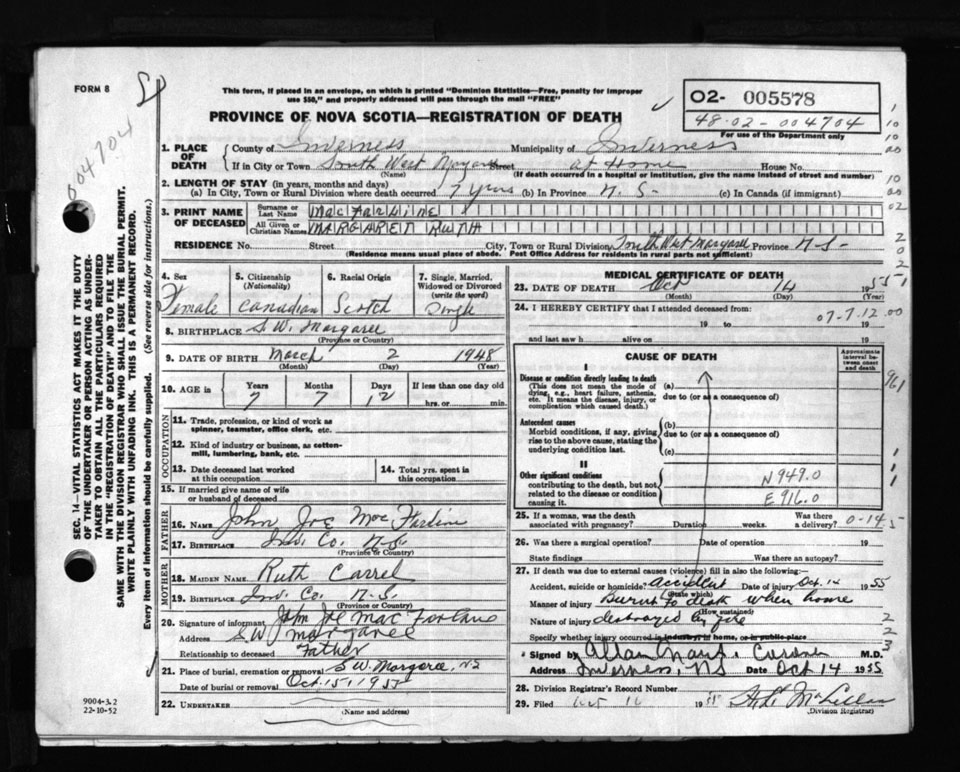 FORM 8
This form, if placed in an envelope, on which is printed "Dominion Statistics—Free, penalty for improper
use $50," and properly addressed will pass through the mail "FREE"
PROVINCE OF NOVA SCOTIA—REGISTRATION OF DEATH
O2- 005578
48-02-004704
For use of the Department only
004704
SEC. 14—VITAL STATISTICS ACT MAKES IT THE DUTY
OF THE UNDERTAKER OR PERSON ACTING AS UNDER-
TAKER TO OBTAIN ALL THE PARTICULARS REQUIRED
IN THE "REGISTRATION OF DEATH" AND TO FILE THE
SAME WITH THE DIVISION REGISTRAR WHO SHALL ISSUE THE BURIAL PERMIT.
WRITE PLAINLY WITH UNFADING INK. THIS IS A PERMANENT RECORD.
Every item of information should be carefully supplied. (See reverse side for instructions.)
1. PLACE OF DEATH County of Inverness Municipality of Inverness
If in City or Town South West Margaree Street at Home House No.
(Name) (If death occurred in a hospital or institution, give the name instead of street and number)
2. LENGTH OF STAY (in years, months and days)
(a) In City, Town or Rural Division where death occurred 7 years (b) In Province N. S- (c) In Canada (if immigrant)
3. PRINT NAME OF DECEASED Surname or Last Name MacFarline
All Given or Christian Names MARGARET RUTH
RESIDENCE No. Street City, Town or Rural Division South West Margaree Province N-S-
(Residence means usual place of abode. Post Office Address for residents in rural parts not sufficient)
4. Sex Female
5. Citizenship (Nationality) Canadian
6. Racial Origin Scotch
7. Single, Married, Widowed or Divorced (write the word) Single
8. BIRTHPLACE S.W. Margaree
(Province or Country)
9. DATE OF BIRTH March 2 1948
(Month) (Day) (Year)
10. AGE in Years 7 Months 7 Days 12 If less than one day old
hrs. or min.
OCCUPATION
11. Trade, profession, or kind of work as
spinner, teamster, office clerk, etc.
12. Kind of industry or business, as cotton-
mill, lumbering, bank, etc.
13. Date deceased last worked
at this occupation
14. Total yrs. spent in
this occupation
15. If married give name of wife
or husband of deceased
FATHER
16. NAME John Joe Mac Farline
17. BIRTHPLACE Inv. Co. N-S.
(Province or Country)
MOTHER
18. MAIDEN NAME Ruth Carrel
19. BIRTHPLACE Inv. Co. N-S.
(Province or Country)
20. Signature of informant John Joe Mac Farlane
Address S.W. Margaree
Relationship to deceased Father
21. Place of burial, cremation or removal S.W. Margaree, N-S
Date of burial or removal Oct. 15, 1955
22. UNDERTAKER
(Name and address)
9004-3.2
22-10-52
MEDICAL CERTIFICATE OF DEATH
23. DATE OF DEATH Oct 14 1955
(Month) (Day) (Year)
24. I HEREBY CERTIFY that I attended deceased from:
07-7.12.00
19 to 19
and last saw h alive on 19
CAUSE OF DEATH
Approximate interval between onset and death
I
Disease or condition directly leading to death (a)
(This does not mean the mode of dying, e.g., heart failure, asthenia, etc. It means the disease, injury, or complication which caused death.)
due to (or as a consequence of)
Antecedent causes (b)
Morbid conditions, if any, giving rise to the above cause, stating the underlying condition last.
due to (or as a consequence of)
(c)
II
Other significant conditions
contributing to the death, but not
related to the disease or condition
causing it.
N949.0
E916.0
25. If a woman, was the death Was there
associated with pregnancy? Duration weeks. a delivery? 0-14
26. Was there a surgical operation? Date of operation 19
State findings Was there an autopsy?
27. If death was due to external causes (violence) fill in also the following:—
Accident, suicide or homicide? accident Date of injury Oct. 14 1955
(State which)
Manner of injury Burnt to death when home
(How sustained)
Nature of injury destroyed by fire
Specify whether injury occurred in industry, in home, or in public place
Signed by M.D.
Address Inverness, NS Date Oct 14 1955
28. Division Registrar's Record Number
29. Filed 19 McLellan
(Division Registrar)